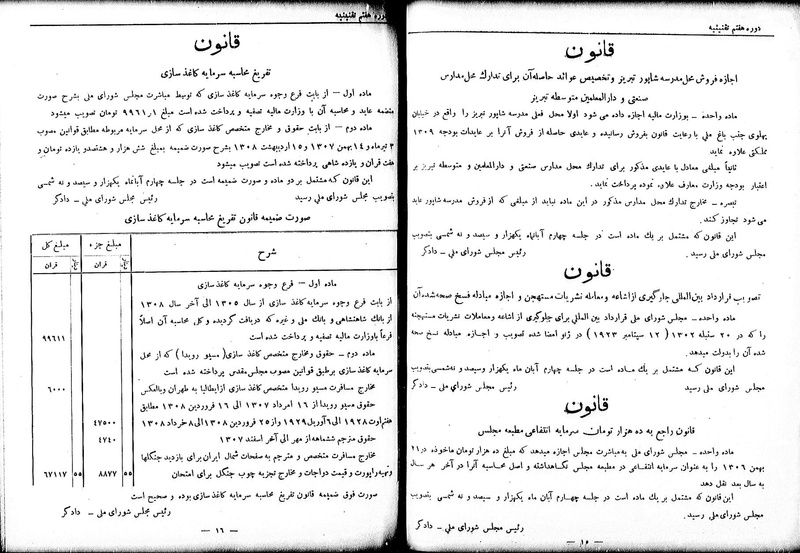 دوره هفتم تقنینیه
قانون
اجازه فروش محل مدرسه شاپور تبریز و تخصیص عوائد حاصله آن برای تدارک محل مدارس
صنعتی و دارالمعلمین متوسطه تبریز
ماده واحده ـ بوزارت مالیه اجازه داده می شود اولا محل فعلی مدرسه شاپور تبریز را واقع در خیابان
پهلوی جنب باغ ملی با رعایت قانون بفروش رسانیده و عایدی حاصله از فروش آنرا بر عایدات بودجه ۱۳۰۹
مملکتی علاوه نماید
ثانیاً مبلغی معادل با عایدی مذکور برای تدارک محل مدارس صنعتی و دارالمعلمین و متوسطه تبریز بر
اعتبار بودجه وزارت معارف علاوه نموده پرداخت نماید.
تبصره ـ مخارج تدارک محل مدارس مذکور در این ماده نباید از مبلغی که از فروش مدرسه شاپور عاید
می شود تجاوز کند.
این قانون که مشتمل بر یک ماده است در جلسه چهارم آبانماه یکهزار و سیصد و نه شمسی بتصویب
مجلس شورای ملی رسید. رئیس مجلس شورای ملی ـ دادگر
قانون
تصویب قرارداد بین‌المللی جلوگیری از اشاعه و معامله نشریات مستهجن و اجازه مبادله نسخ صحه شده آن
ماده واحده ـ مجلس شورای ملی قرارداد بین‌المللی برای جلوگیری از اشاعه و معاملات نشریات مستهجنه
را که در ۲۰ سنبله ۱۳۰۲ (۱۲ سپتامبر ۱۹۲۳) در ژنو امضا شده تصویب و اجازه مبادله نسخ صحه
شده آن را بدولت میدهد.
این قانون که مشتمل بر یک ماده است در جلسه چهارم آبان ماه یکهزار وسیصد و نه شمسی بتصویب
مجلس شورای ملی رسید رئیس مجلس شورای ملی ـ دادگر
قانون
قانون راجع به ده هزار تومان سرمایه انتفاعی مطبعه مجلس
ماده واحده ـ مجلس شورای ملی به مباشرت مجلس اجازه میدهد که مبلغ ده هزار تومان ماخوذه در ۲۱
بهمن ۱۳۰۶ را به عنوان سرمایه انتفاعی در مطبعه مجلس نگاهداشته و اصل محاسبه آنرا در آخر هر سال
به سال بعد نقل دهد
این قانون که مشتمل بر یک ماده است در جلسه چهارم آبان ماه یکهزار و سیصد و نه شمسی بتصویب
مجلس شورای ملی رسید. رئیس مجلس شورای ملی ـ دادگر
ـ ۱۵ ـ
دوره هفتم تقنینیه
قانون
تفریغ محاسبه سرمایه کاغذ سازی
ماده اول ـ از بابت فرع وجوه سرمایه کاغذ سازی که توسط مباشرت مجلس شورای ملی بشرح صورت
منضمه عاید و محاسبه آن با وزارت مالیه تصفیه و پرداخت شده است مبلغ ۹۹۶۱٫۱ تومان تصویب میشود
ماده دوم ـ از بابت حقوق و مخارج متخصص کاغذ سازی که از محل سرمایه مربوطه مطابق قوانین مصوب
۳ تیرماه و ۱۴ بهمن ۱۳۰۷ و ۱۵ اردیبهشت ۱۳۰۸ بشرح صورت ضمیمه بمبلغ شش هزار و هفتصد و یازده تومان و
هفت قران و یازده شاهی پرداخته شده است تصویب میشود
این قانون که مشتمل بر دو ماده و صورت ضمیمه است در جلسه چهارم آبانماه یکهزار و سیصد و نه شمسی
بتصویب مجلس شورای ملی رسید. رئیس مجلس شورای ملی ـ دادگر
صورت ضمیمه قانون تفریغ محاسبه سرمایه کاغذ سازی
شرح مبلغ جزء مبلغ کل
قران قران
ماده اول ـ فرع وجوه سرمایه کاغذ سازی
از بابت فرع وجوه سرمایه کاغذ سازی از سال ۱۳۰۵ الی آخر سال ۱۳۰۸
از بانک شاهنشاهی و بانک ملی و غیره که دریافت گردیده و کل محاسبه آن اصلاً
فرعاً باوزارت مالیه تصفیه و پرداخته شده است ۹۹۶۱۱
ماده دوم ـ حقوق و مخارج متخصص کاغذ سازی (مسیو رویدا) که از محل
سرمایه کاغذ سازی برطبق قوانین مصوب مجلس مقدس پرداخته شده است
مخارج مسافرت مسیو رویدا متخصص کاغذ سازی از ایطالیا به طهران وبالعکس ۶۰۰۰
حقوق مسیو رویدا از ۱۶ امرداد ۱۳۰۷ الی ۱۶ فروردین ۱۳۰۸ مطابق
هفتم اوت ۱۹۲۸ الی ۶ آوریل ۱۹۲۹ و از ۲۵ فروردین ۱۳۰۸ الی ۸ خرداد ۱۳۰۸ ۴۷۵۰۰
حقوق مترجم ششماهه از مهر الی آخر اسفند ۱۳۰۷ ۴۷۴۰
مخارج مسافرت متخصص و مترجم به صفحات شمال ایران برای بازدید جنگلها
وتهیه راپورت و قیمت دواجات و مخارج تجزیه چوب جنگل برای امتحان ۵۵ ۸۸۷۷ ۵۵ ۶۷۱۱۷
صورت فوق ضمیمه قانون تفریغ محاسبه سرمایه کاغذ سازی بوده و صحیح است
رئیس مجلس شورای ملی ـ دادگر
ـ ۱۶ ـ